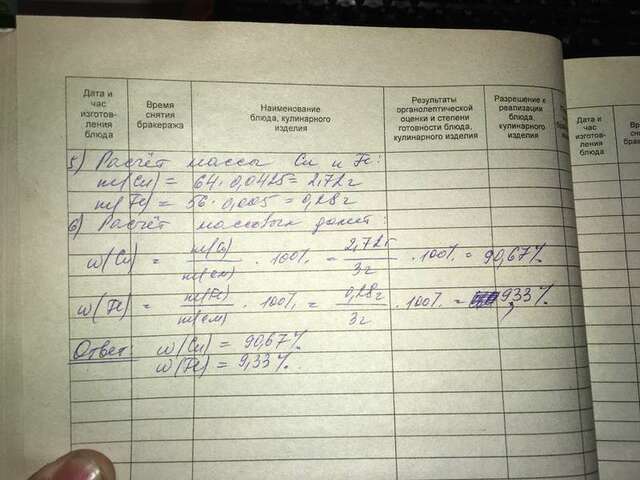 Дата и
час
изготов-
ления
блюда
Время
снятия
бракеража
Наименование
блюда, кулинарного
изделия
Результаты
органолептической
оценки и степени
готовности блюда,
кулинарного изделия
Разрешение к
реализации
блюда,
кулинарного
изделия
Дата и
час
изготов-
ления
блюда
5) Расчёт массы Cu и Fe:
m(Cu) = 64 · 0,0425 = 2,72г
m(Fe) = 56 · 0,005 = 0,28г
6) Расчёт массовых долей:
w(Cu) = m(Cu) / m(см) · 100% = 2,72г / 3г · 100% = 90,67%
w(Fe) = m(Fe) / m(см) · 100% = 0,28г / 3г · 100% = 9,33%
Ответ: w(Cu) = 90,67%
w(Fe) = 9,33%.